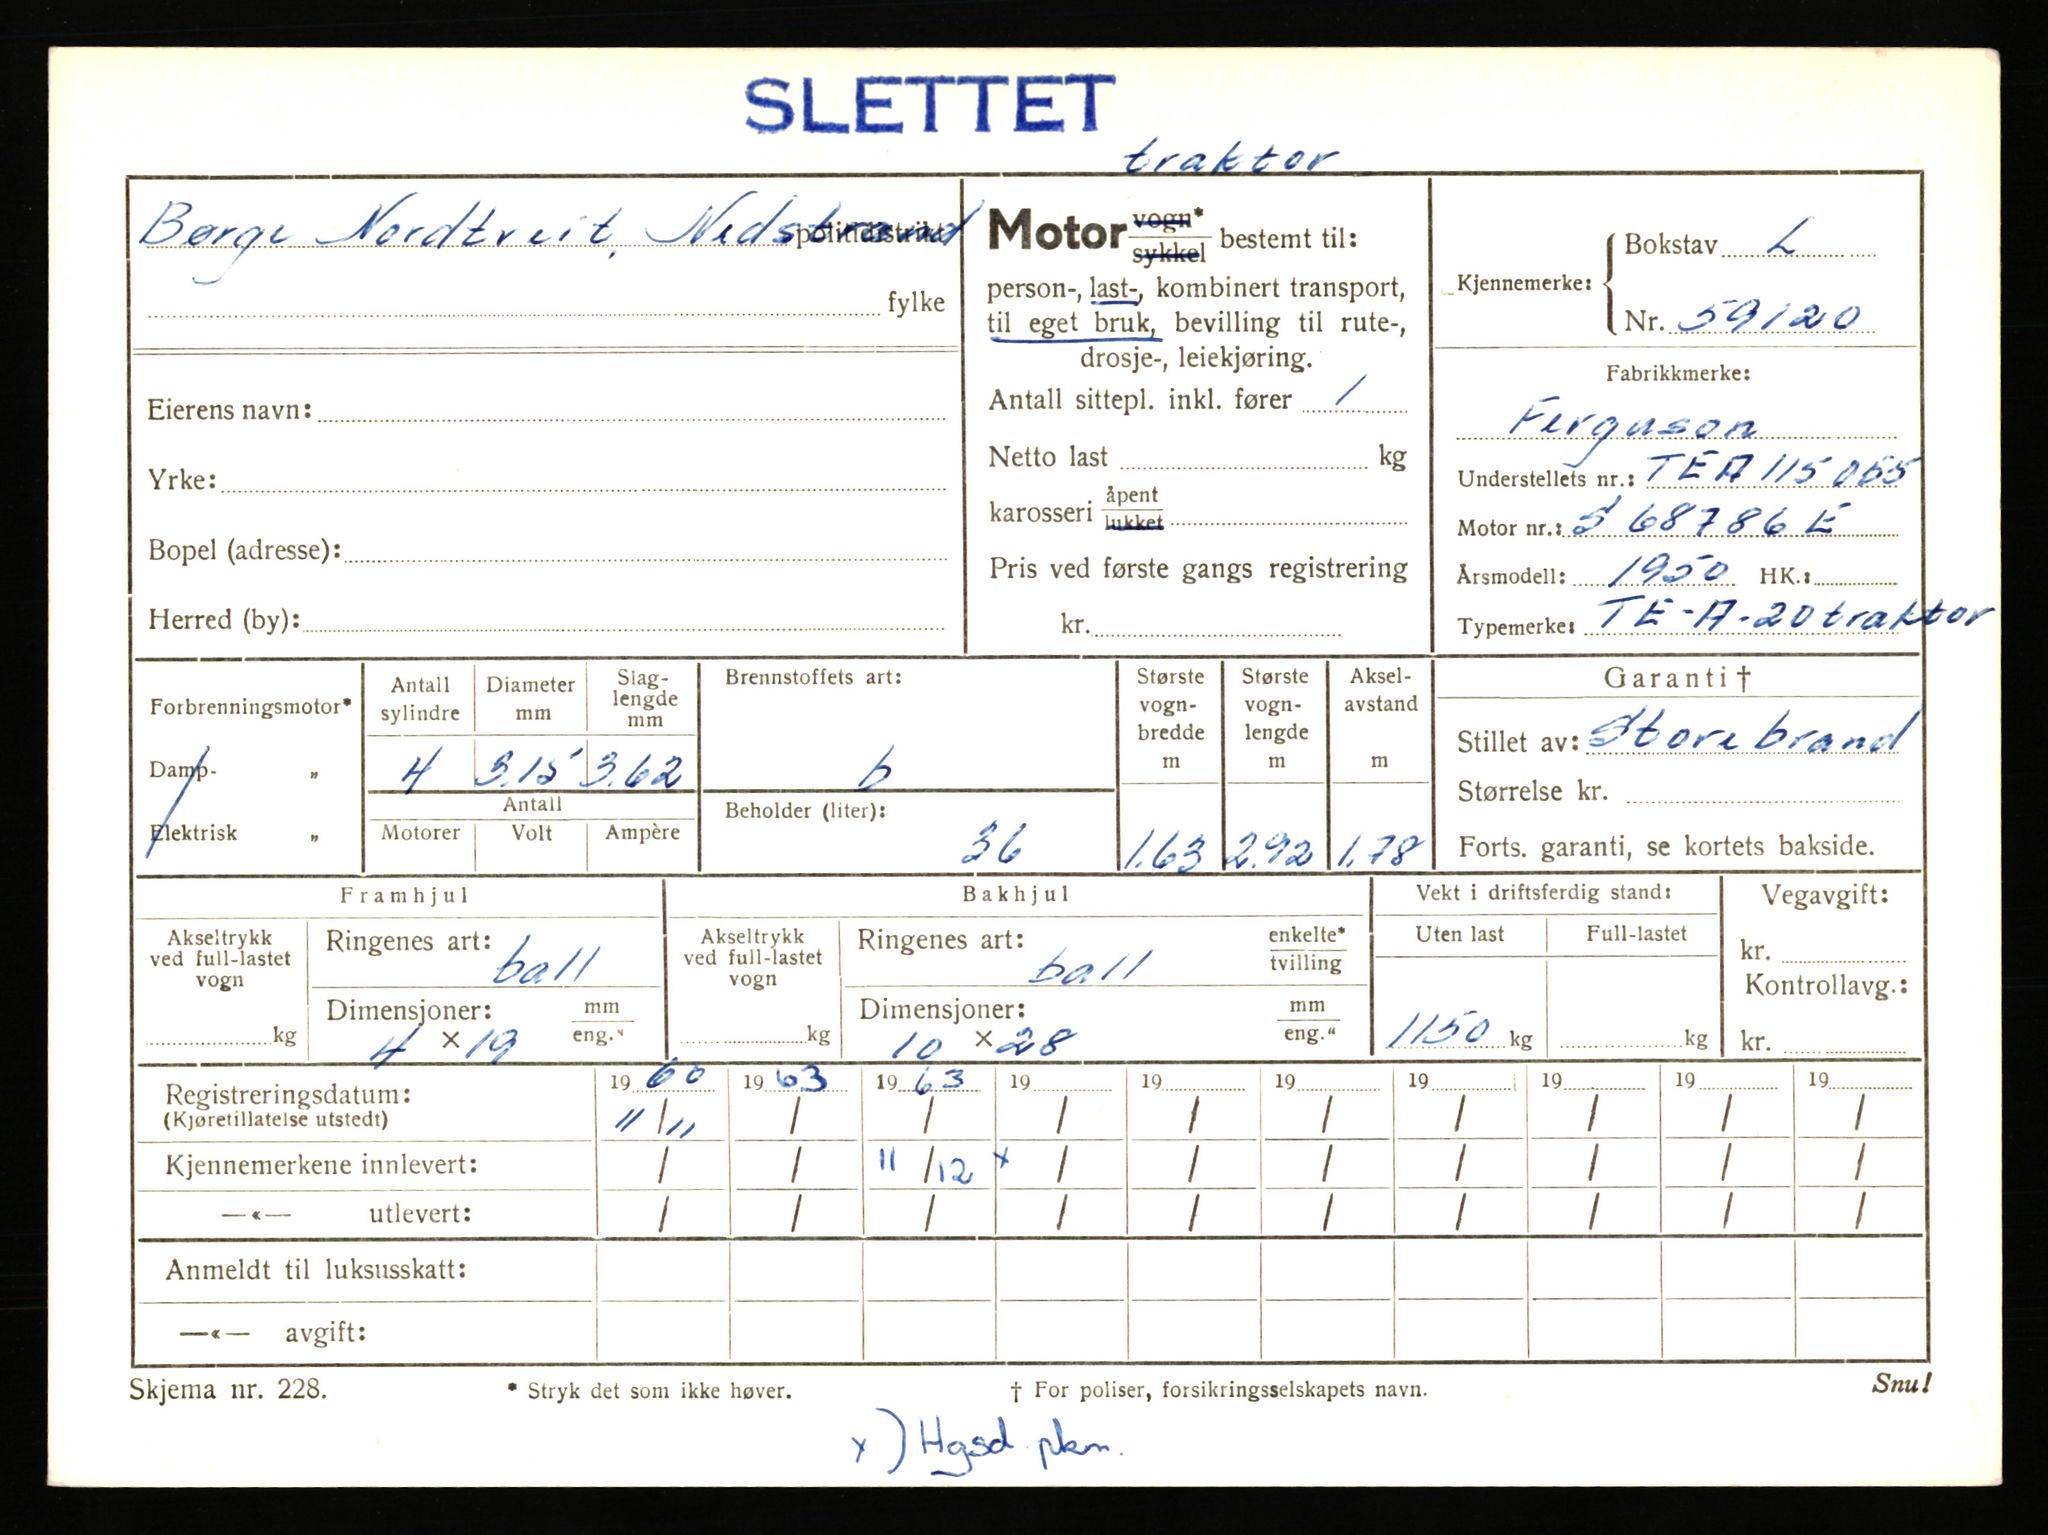 SLETTET
traktor
Børge Nordtveit, Nedstrand politidistrikt
fylke
Eierens navn:
Yrke:
Bopel (adresse):
Herred (by):
Motor vogn* sykkel bestemt til:
person-, last-, kombinert transport,
til eget bruk, bevilling til rute-,
drosje-, leiekjøring.
Antall sittepl. inkl. fører 1
Netto last kg
karosseri åpent lukket
Pris ved første gangs registrering
kr.
Kjennemerke: Bokstav L
Nr. 59120
Fabrikkmerke:
Ferguson
Understellets nr.: TEA 115055
Motor nr.: S 68786 E
Årsmodell: 1950 HK.:
Typemerke: TE-A-20 traktor
Forbrenningsmotor*
Damp- „
Elektrisk „
Antall sylindre
Diameter mm
Slag-lengde mm
4 3.15 3.62
Antall
Motorer Volt Ampère
Brennstoffets art:
b
Beholder (liter):
36
Største vogn-bredde m
1.63
Største vogn-lengde m
2.92
Aksel-avstand m
1.78
Garanti †
Stillet av: Storebrand
Størrelse kr.
Forts. garanti, se kortets bakside.
Framhjul
Akseltrykk ved full-lastet vogn
kg
Ringenes art:
ball
Dimensjoner: mm eng."
4 × 19
Bakhjul
Akseltrykk ved full-lastet vogn
kg
Ringenes art: enkelte* tvilling
ball
Dimensjoner: mm eng."
10 × 28
Vekt i driftsferdig stand:
Uten last Full-lastet
1150 kg kg
Vegavgift:
kr.
Kontrollavg.:
kr.
Registreringsdatum: 19 60 19 63 19 63 19 19 19 19 19 19 19
(Kjøretillatelse utstedt) 11/11 / / / / / / / / /
Kjennemerkene innlevert: / / 11/12 x / / / / / / /
—«— utlevert: / / / / / / / / / /
Anmeldt til luksusskatt:
—«— avgift:
Skjema nr. 228. * Stryk det som ikke høver. † For poliser, forsikringsselskapets navn. Snu!
x) Hgsd. pkm.